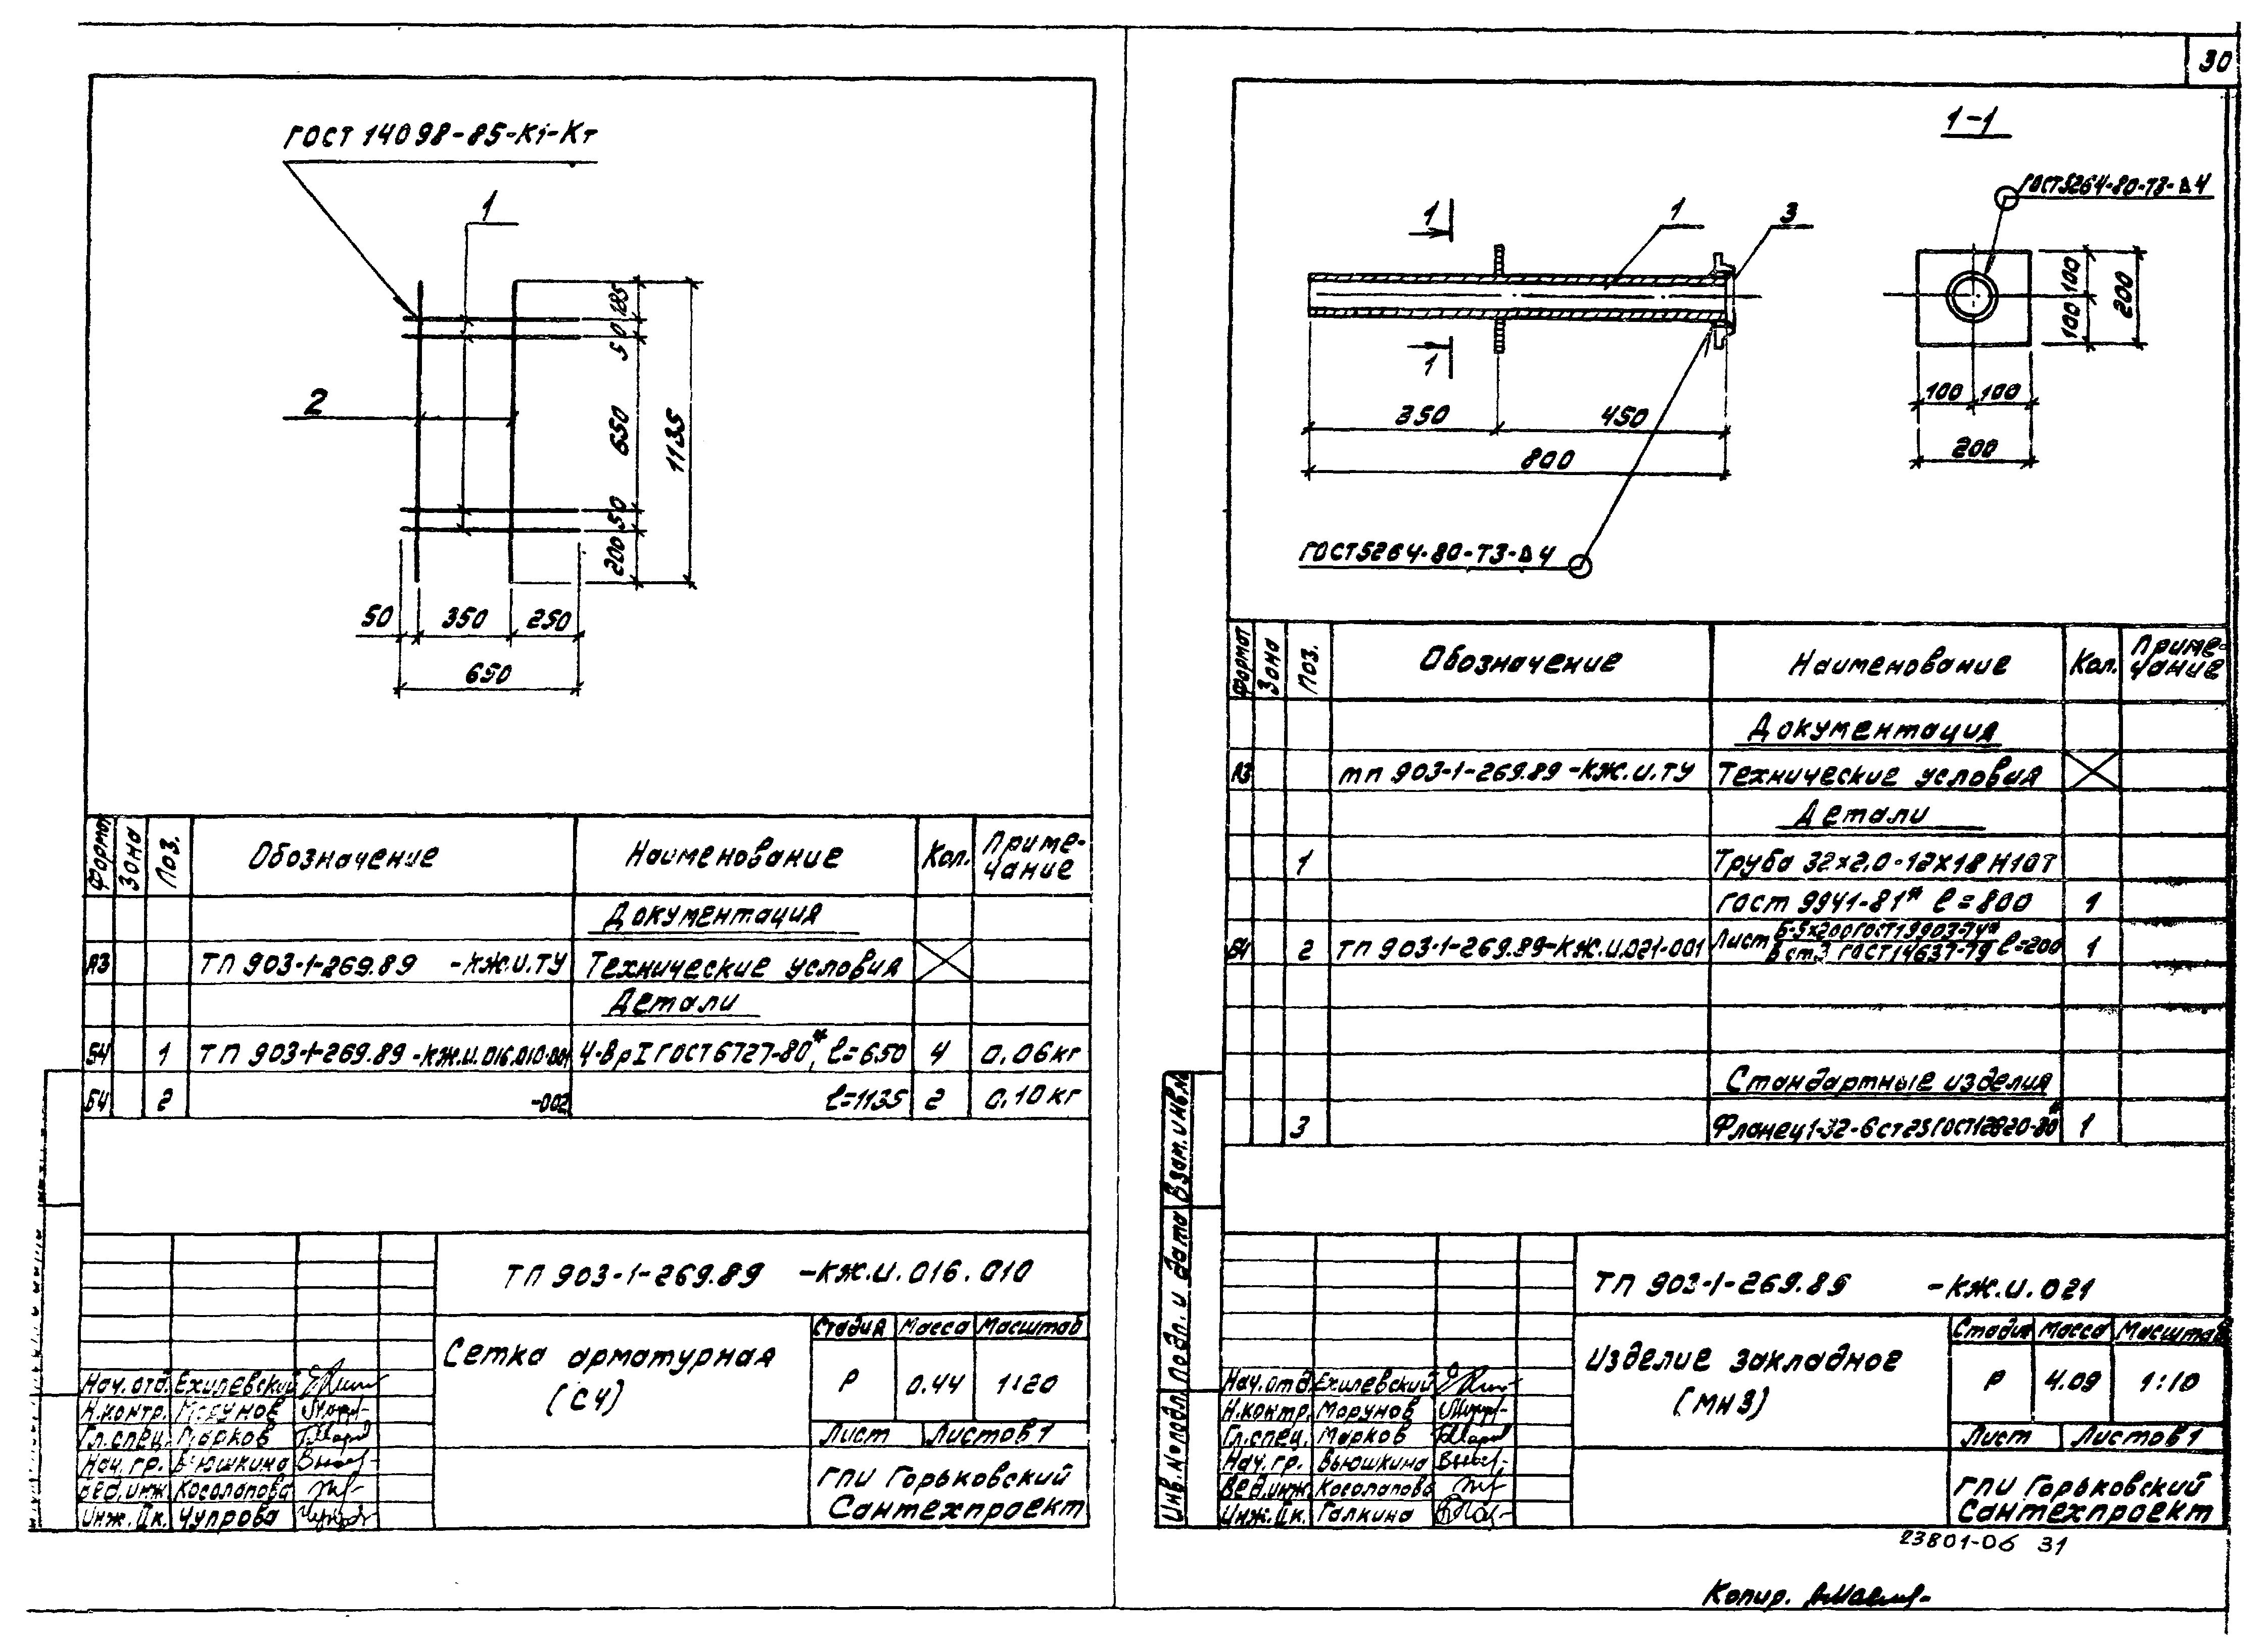 30
ГОСТ 14098-85-К1-Кт
1
2
185
50
650
50
200
1135
50 350 250
650
Формат Зона Поз. Обозначение Наименование Кол. Приме-
чание
Документация
А3 ТП 903-1-269.89 -КЖ.И.ТУ Технические условия
Детали
БЧ 1 ТП 903-1-269.89 -КЖ.И.016.010-001 4-ВрI ГОСТ 6727-80*, ℓ=650 4 0.06кг
БЧ 2 -002 ℓ=1135 2 0.10кг
ТП 903-1-269.89 -КЖ.И.016.010
Сетка арматурная
(С4)
Стадия Масса Масштаб
Р 0.44 1:20
Лист Листов 1
ГПИ Горьковский
Сантехпроект
Нач.отд. Ехилевский
Н.контр. Морунов
Гл.спец. Марков
Нач.гр. Вьюшкина
Вед.инж. Косолапова
Инж.IIк. Чупрова
1-1
ГОСТ5264-80-Т3-⊿4
1
1
1
3
350 450
800
ГОСТ5264-80-Т3-⊿4
100 100
200
100 100
200
Формат Зона Поз. Обозначение Наименование Кол. Приме-
чание
Документация
А3 тп 903-1-269.89 -КЖ.И.ТУ Технические условия
Детали
1 Труба 32×2,0-12×18Н10Т
гост 9941-81* ℓ=800 1
БЧ 2 ТП 903-1-269.89-КЖ.И.021-001 Лист Б-5×200 ГОСТ19903-74*
Вст3 ГОСТ14637-79 ℓ=200 1
Стандартные изделия
3 Фланец 1-32-6 ст25 ГОСТ12820-80* 1
Взам.инв.№
Подп. и дата
Инв.№ подл.
ТП 903-1-269.89 -КЖ.И.021
Изделие закладное
(МН3)
Стадия Масса Масштаб
Р 4.09 1:10
Лист Листов 1
ГПИ Горьковский
Сантехпроект
Нач.отд. Ехилевский
Н.контр. Морунов
Гл.спец. Марков
Нач.гр. Вьюшкина
Вед.инж. Косолапова
Инж.IIк. Галкина
23801-06 31
Копир.